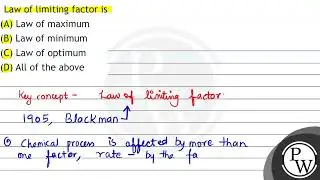 Law of limiting factor is
(A) Law of maximum
(B) Law of minimum
(C) Law of optimum
(D) All of the above
Key concept - Law of limiting factor
1905, Blackman
Chemical process is affected by more than
one factor, rate - by the fa
PW